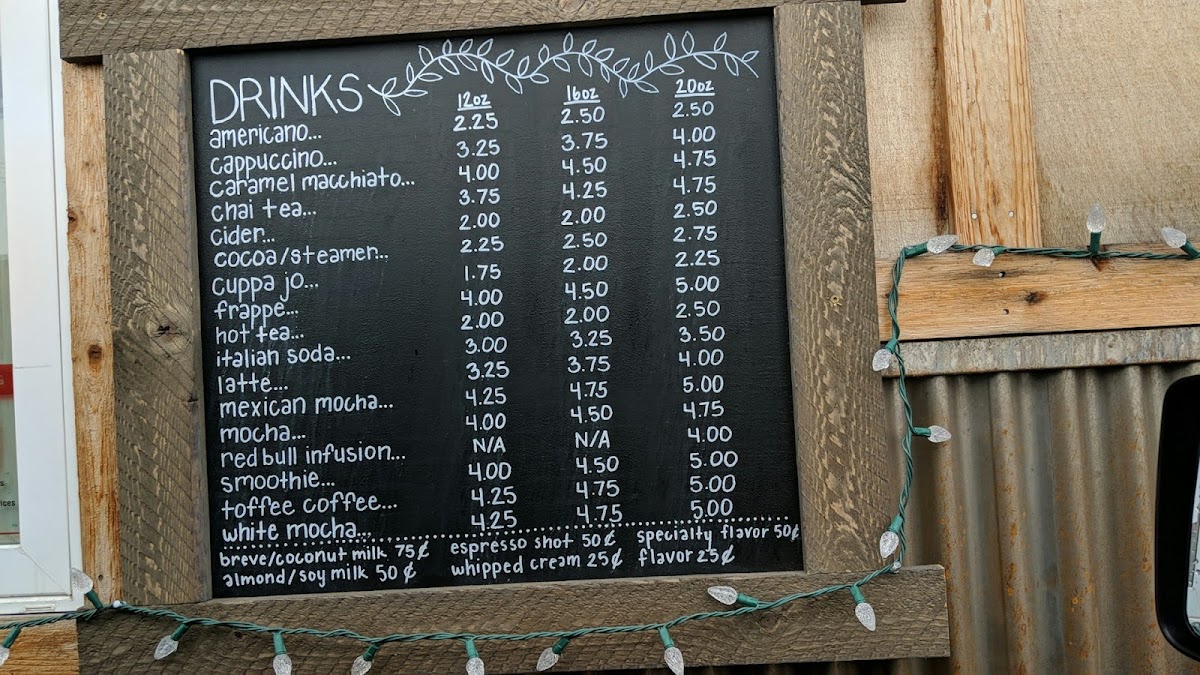 DRINKS 12oz 16oz 20oz
americano... 2.25 2.50 2.50
cappuccino... 3.25 3.75 4.00
caramel macchiato... 4.00 4.50 4.75
chai tea... 3.75 4.25 4.75
cider... 2.00 2.00 2.50
cocoa/steamer... 2.25 2.50 2.75
cuppa jo... 1.75 2.00 2.25
frappe... 4.00 4.50 5.00
hot tea... 2.00 2.00 2.50
italian soda... 3.00 3.25 3.50
latte... 3.25 3.75 4.00
mexican mocha... 4.25 4.75 5.00
mocha... 4.00 4.50 4.75
redbull infusion... N/A N/A 4.00
smoothie... 4.00 4.50 5.00
toffee coffee... 4.25 4.75 5.00
white mocha... 4.25 4.75 5.00
breve/coconut milk 75¢ espresso shot 50¢ specialty flavor 50¢
almond/soy milk 50¢ whipped cream 25¢ flavor 25¢